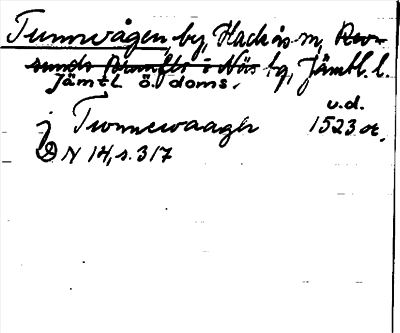 Tunnvågen, by, Hackås sn, Rev-
sunds Brunflo o. Näs tg, Jämtl. l.
Jämtl ö. doms.
j Twnnewaagh u.d. 1523 ot.
N 14, s. 317